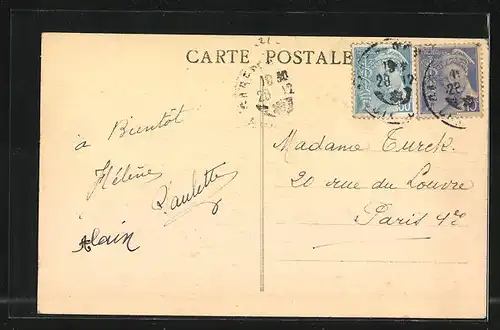 CARTE POSTALE
à Bientôt
Hélène
Paulette
Alain
Madame Turck.
20 rue du Louvre
Paris 1er